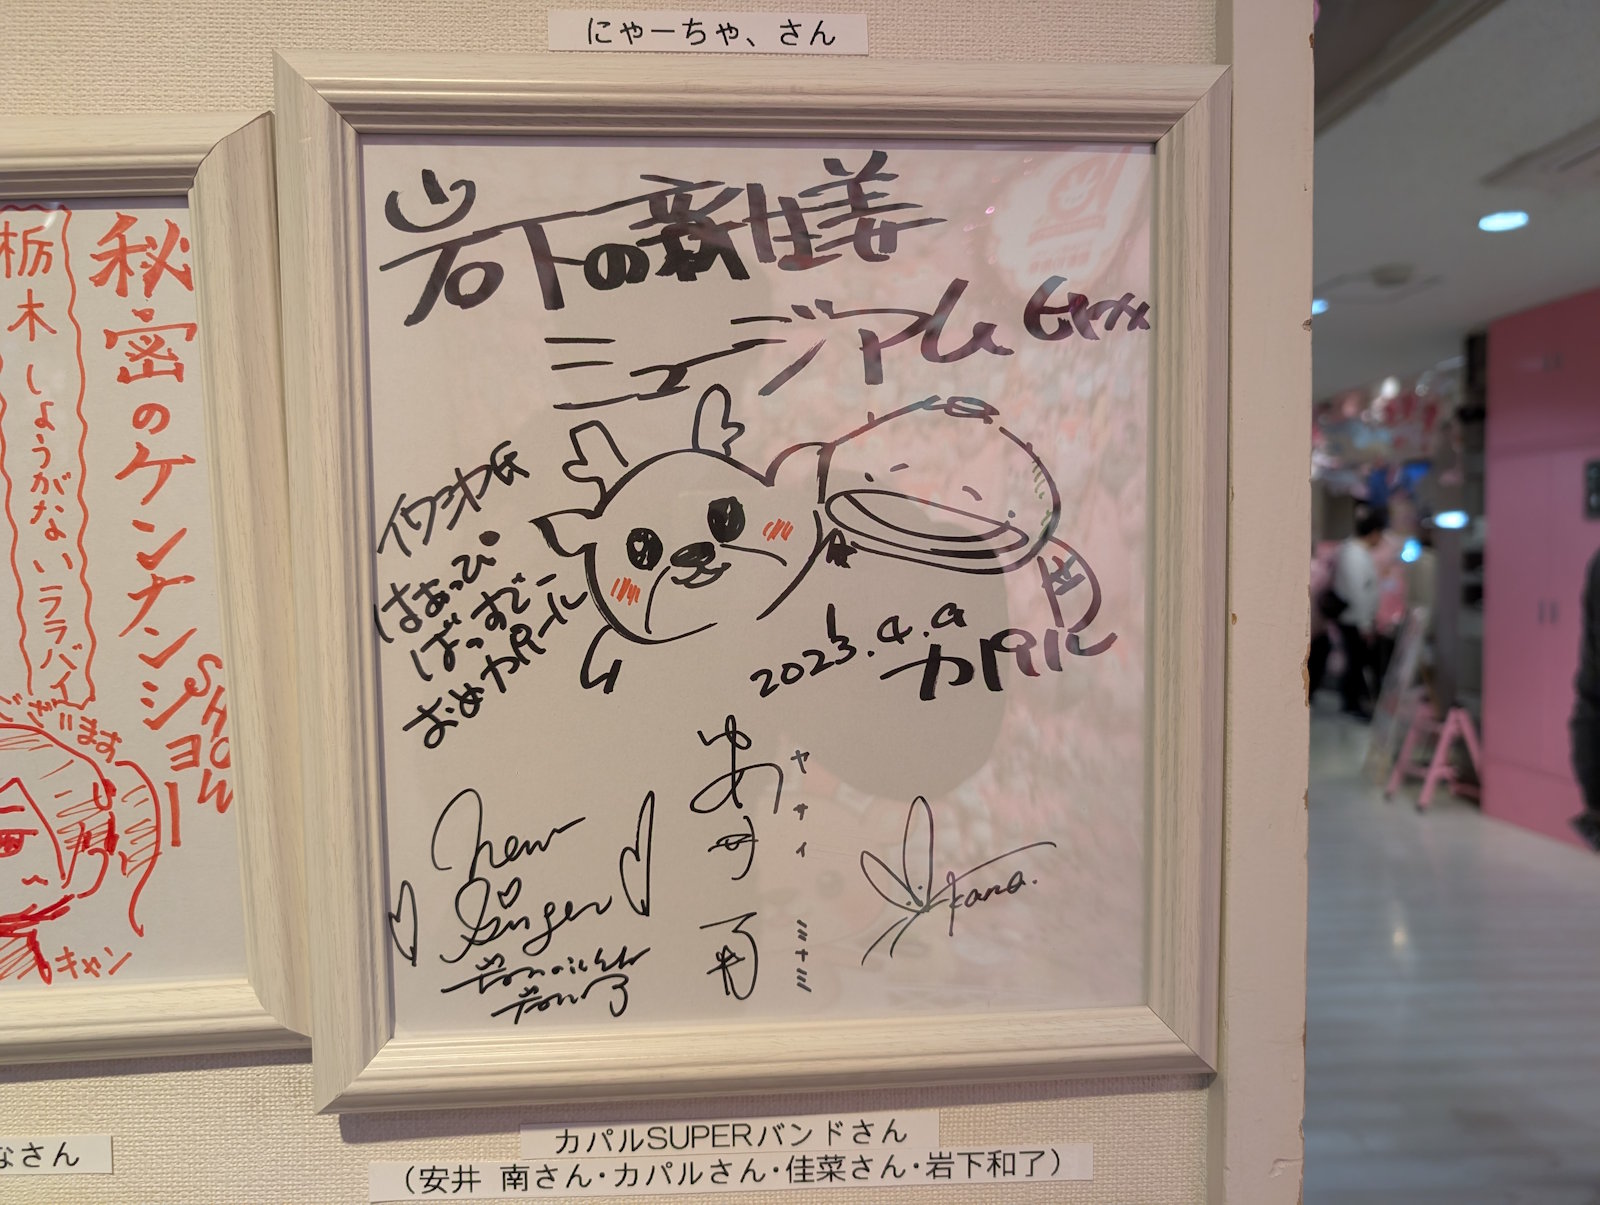 にゃーちゃ、さん
岩下の新生姜
ミュージアム
イワシカ氏
はぁっぴ
ばーすでー
おめカパール
2023.4.9
カパル
New
Singer
ヤスイ ミナミ
kana.
秘密のケンナンショー
SHOW
栃木しょうがないララバイ
ございます
キャン
なさん
カパルSUPERバンドさん
（安井 南さん・カパルさん・佳菜さん・岩下和了）